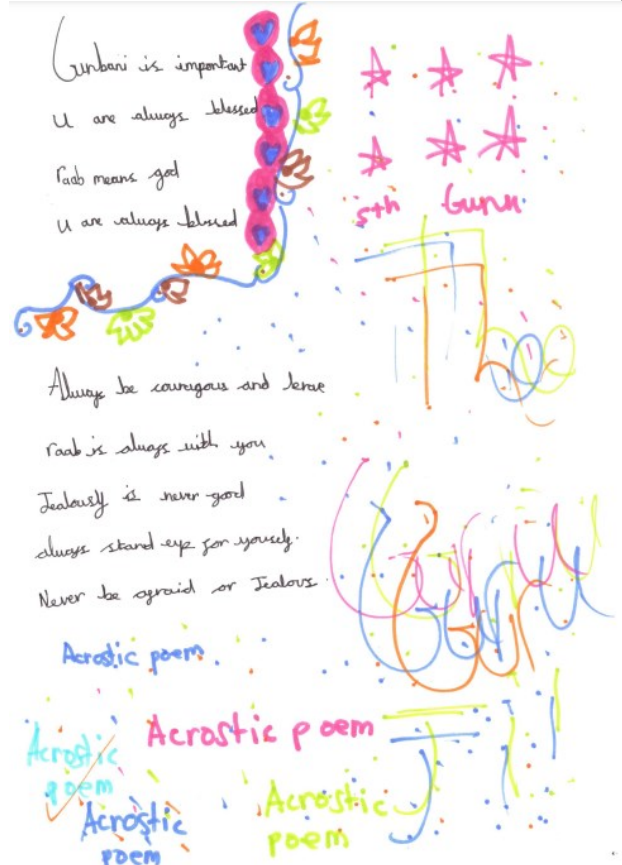 Gurbani is important
U are always blessed
raab means god
U are always blessed
5th Guru
The
Always be couragous and brave
raab is always with you
Jealously is never good
always stand up for yousely.
Never be afraid or Jealous.
Guru
Ji
Acrostic poem
Acrostic poem
Acrostic
poem
Acrostic
poem
Acrostic
poem